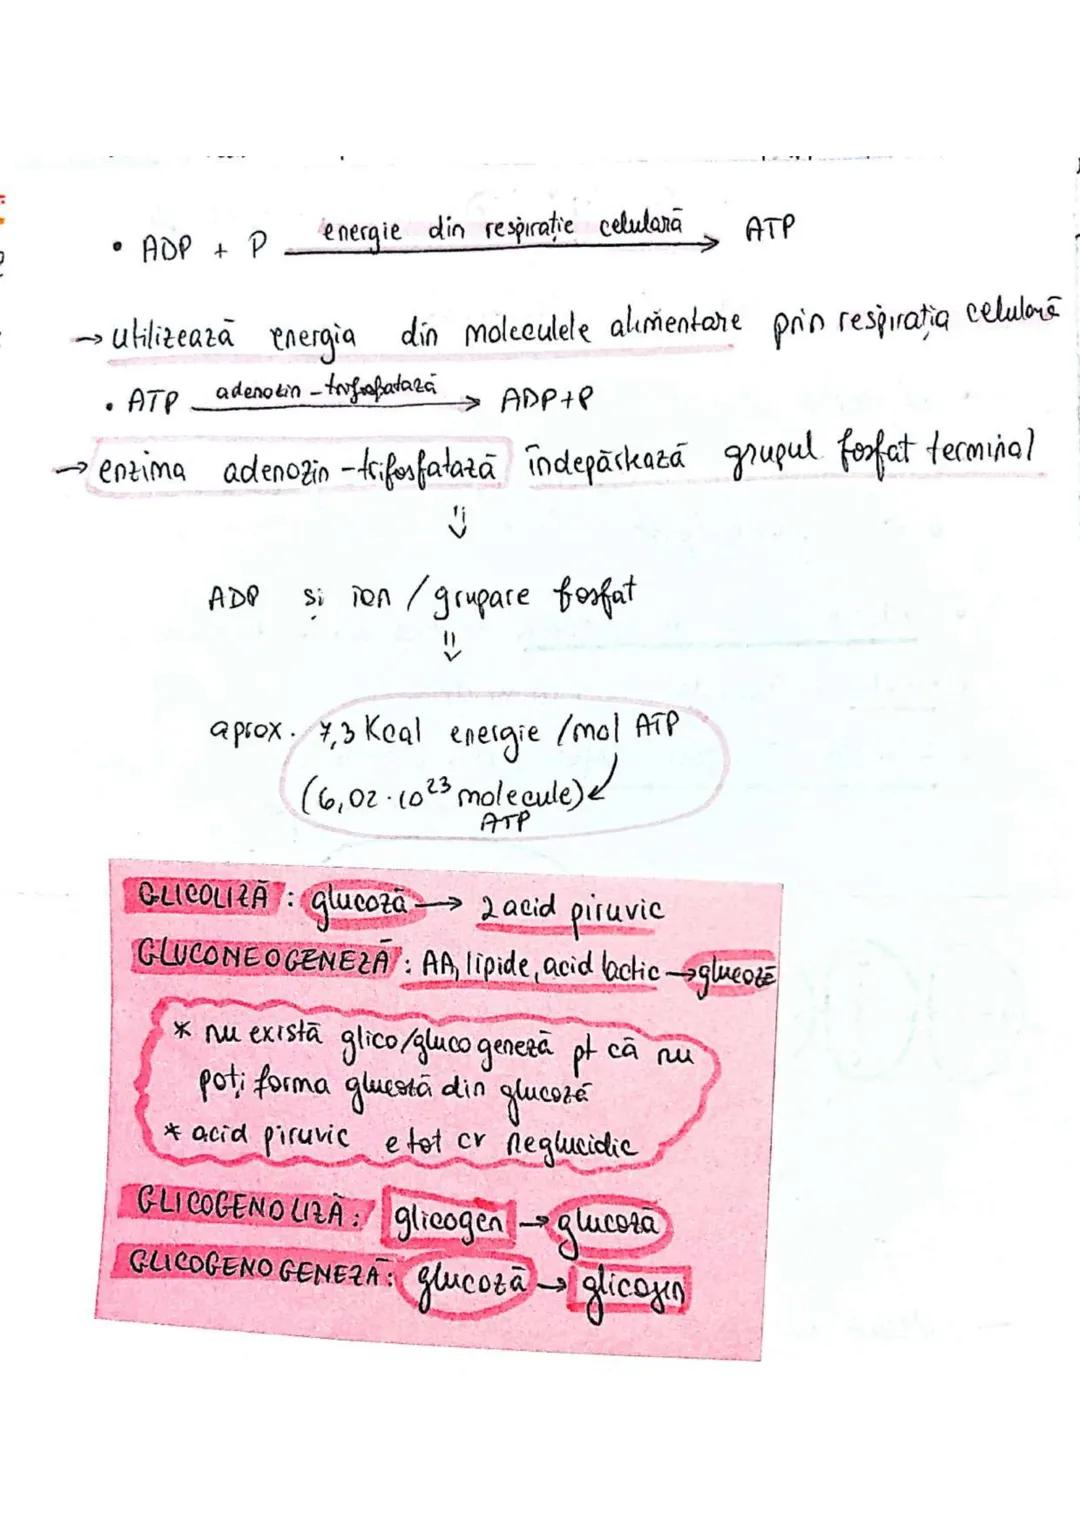 • ADP + P energie din respirație celulară → ATP
→ utilizează energia din moleculele alimentare prin respirația celulară
• ATP adenozin-trifosfatază → ADP+P
→ enzima adenozin-trifosfatază îndepărtează grupul fosfat terminal
⇓
ADP și ion / grupare fosfat
⇓
aprox. 7,3 Kcal energie /mol ATP
(6,02·10²³ molecule)
ATP
GLICOLIZĂ: glucoză → 2 acid piruvic
GLUCONEOGENEZĂ: AA, lipide, acid lactic → glucoză
* nu există glico/gluco geneză pt că nu
poți forma glucoză din glucoză
* acid piruvic e tot cv neglucidic
GLICOGENOLIZĂ: glicogen → glucoză
GLICOGENOGENEZĂ: glucoză → glicogen